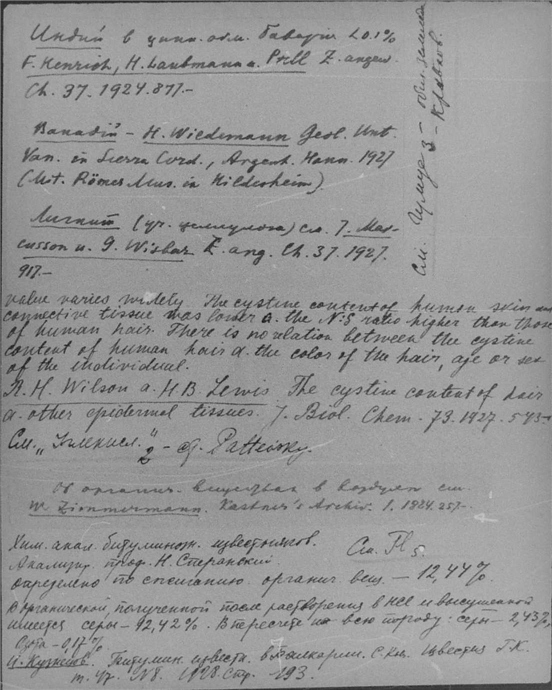 Индий в цинк. обм. Баварія <0.1%
F. Henrich, H. Laubmann u. Prell Z. angew.
Ch. 37. 1924. 817.-
Ванадій - H. Wiedemann Geol. Unt.
Van. in Sierra Cord., Argent. Hann. 1927
(Mt. Römer Mus. in Hildesheim).
Лигнит (уч. целлулоза) см. J. Mar-
cusson u. G. Wisbar Z. ang. Ch. 37. 1927.
917.-
См. Гумус 3 - Кравков.
value varies widely. The cystine content of human skin and
connective tissue was lower a. the N:S ratio higher than those
of human hair. There is no relation between the cystine
content of human hair a. the color of the hair, age or sex
of the individual.
R. H. Wilson a. H.B. Lewis The cystine content of hair
a. other epidermal tissues. J. Biol. Chem. 73. 1927. 543-
См. 2 -
Об органич. веществах в воздухе см.
W. Zimmermann. Kastner's Archiv. 1. 1824. 257.-
Хим. анал. битуминозн. известняков.
Анализир. проф. Н.
См. 5.
определено по сжиганию органич. вещ. - 12,44%.
В органической, полученной после растворения в HCl и высушенной
имеется серы - 92,42%. В пересчете на всю породу: серы - 2,43%
Азота - 0,17%
И. Кузнецов. Битумин. известн. в С. Кав. Известия Г.К.
т. 47. №8. 1928. Стр. 193.